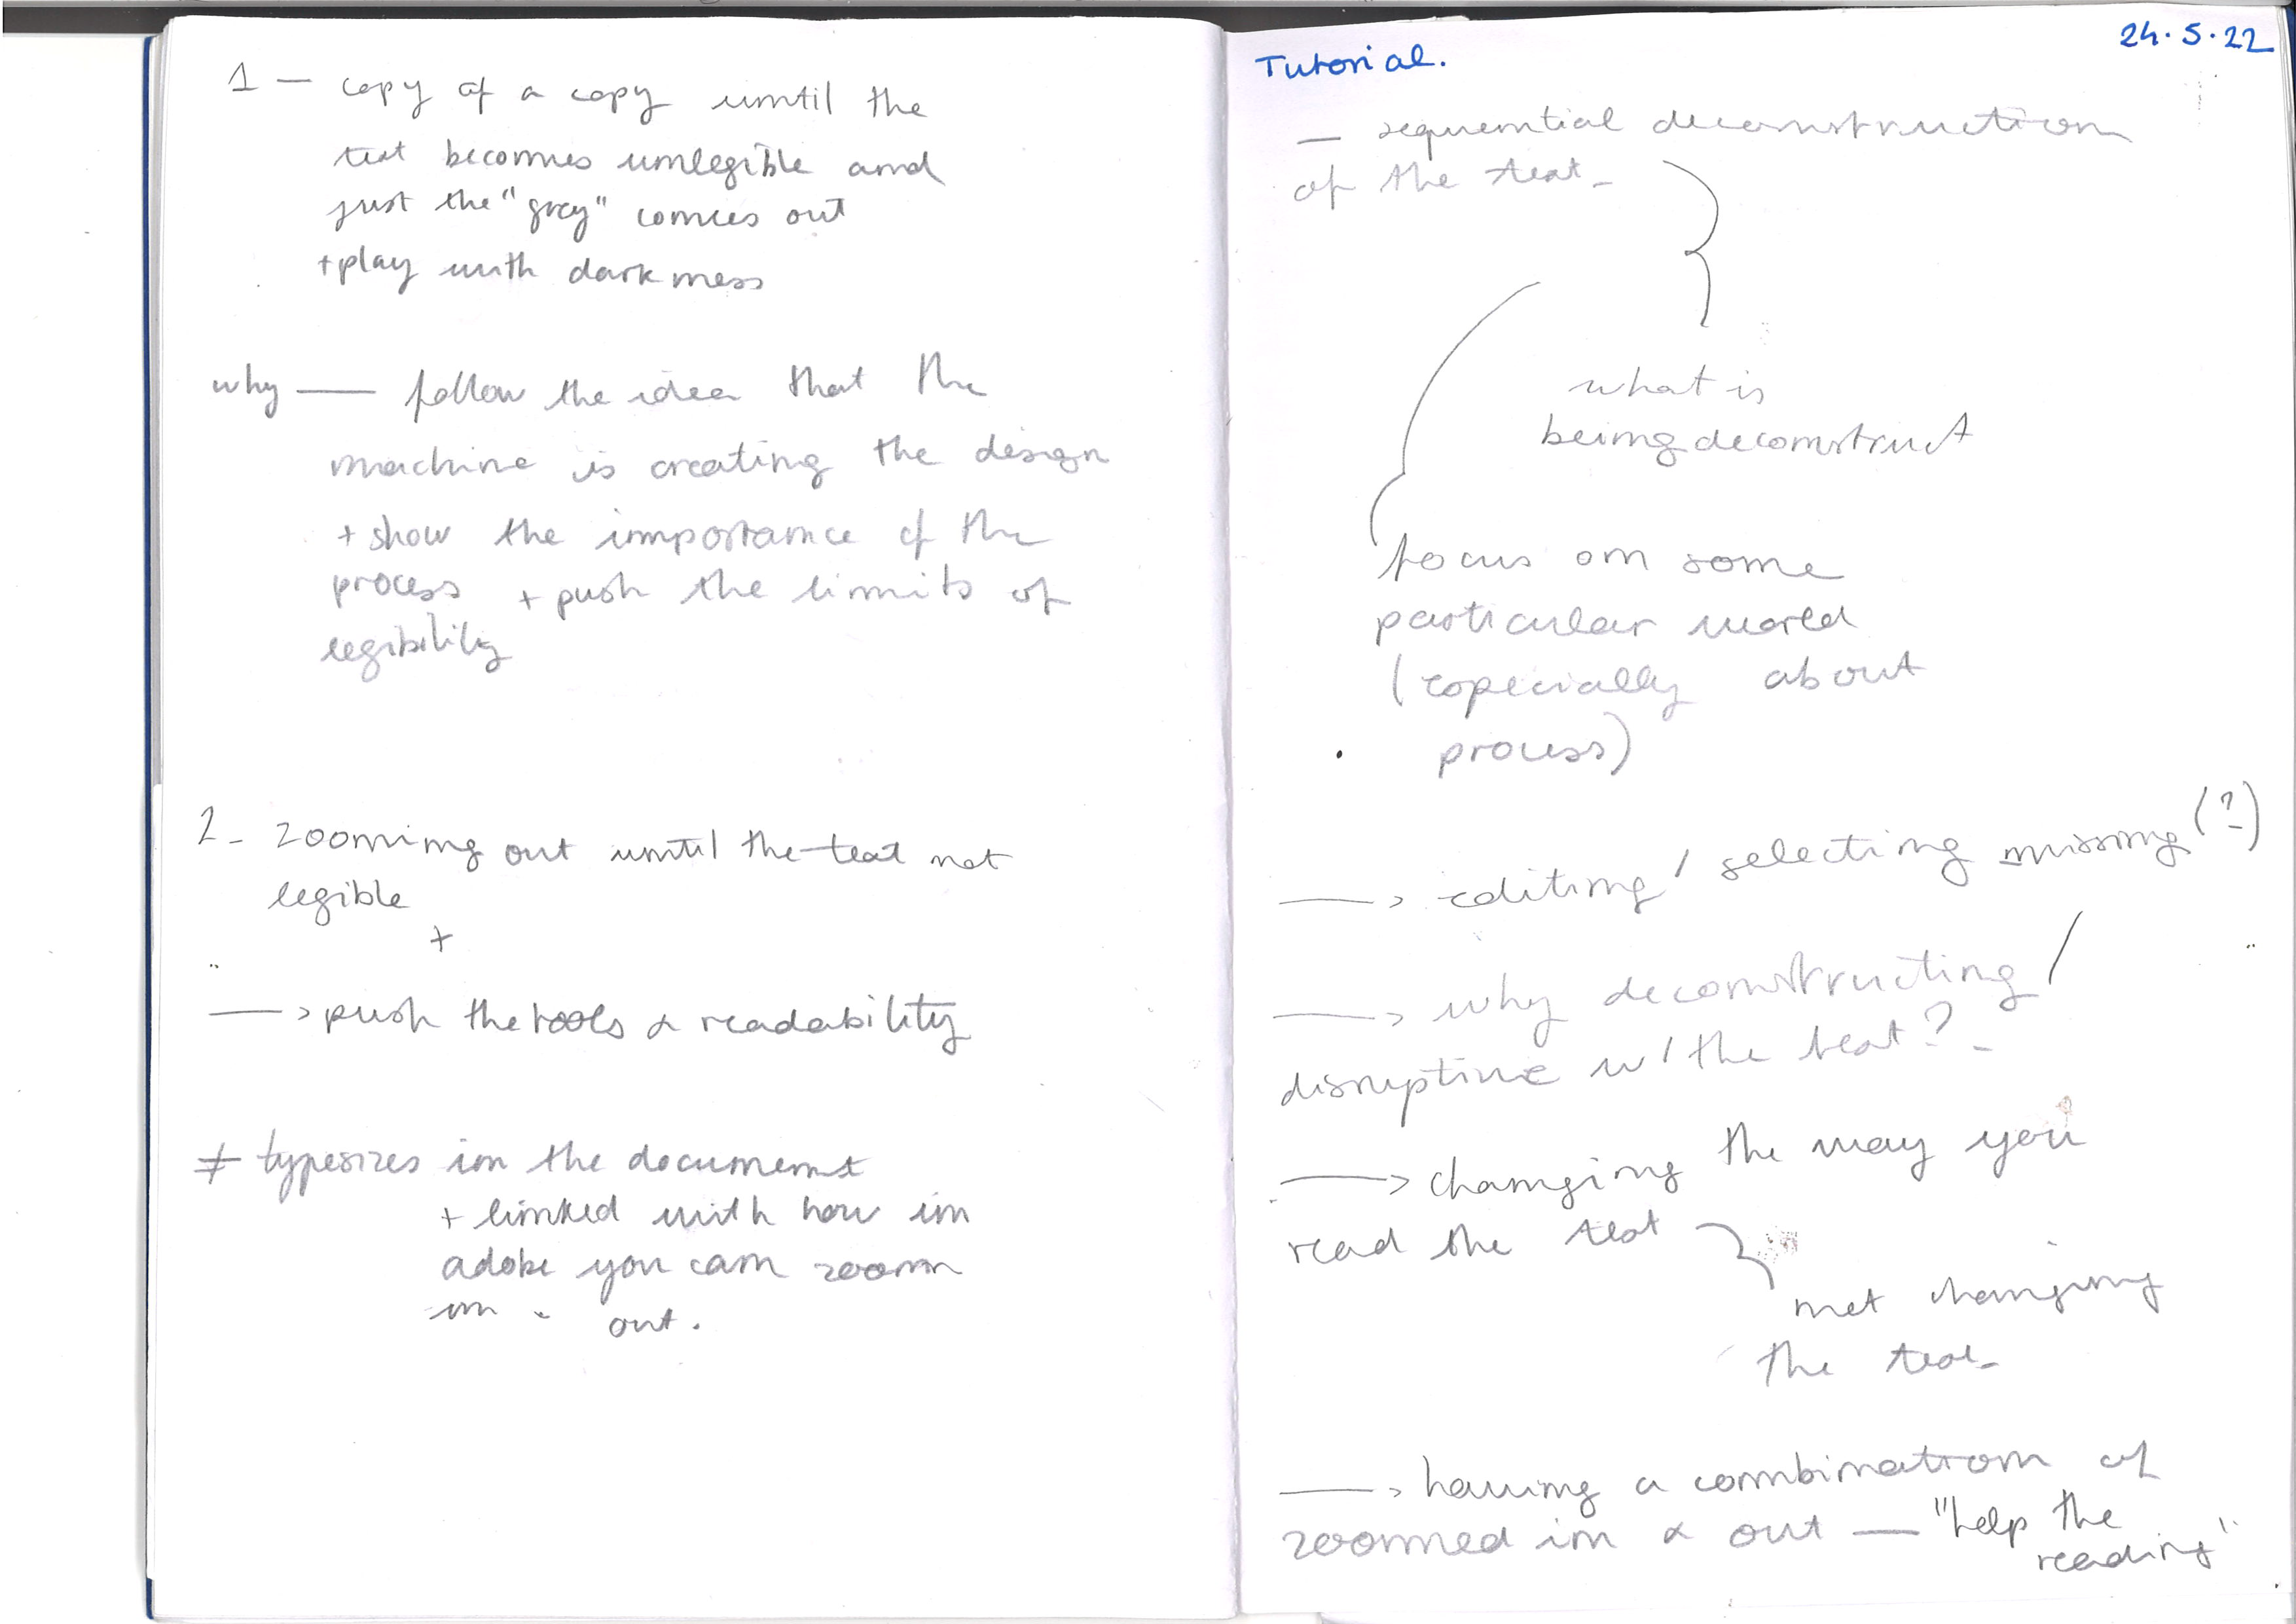 1 — copy of a copy until the
text becomes unlegible and
just the "grey" comes out
+ play with darkness
why — follow the idea that the
machine is creating the design
+ show the importance of the
process + push the limits of
legibility
2 - zooming out until the text not
legible
+
—> push the tools & readability
≠ typesizes in the document
+ linked with how in
adobe you can zoom
in - out.
24.5.22
Tutorial.
— sequential deconstruction
of the text -
what is
being deconstruct
focus on some
particular world
(especially about
process)
—> editing / selecting missing (?)
—> why deconstructing /
disruptive w/ the text? -
—> changing the way you
read the text
not changing
the text -
—> having a combination of
zoomed in & out — "help the
reading"